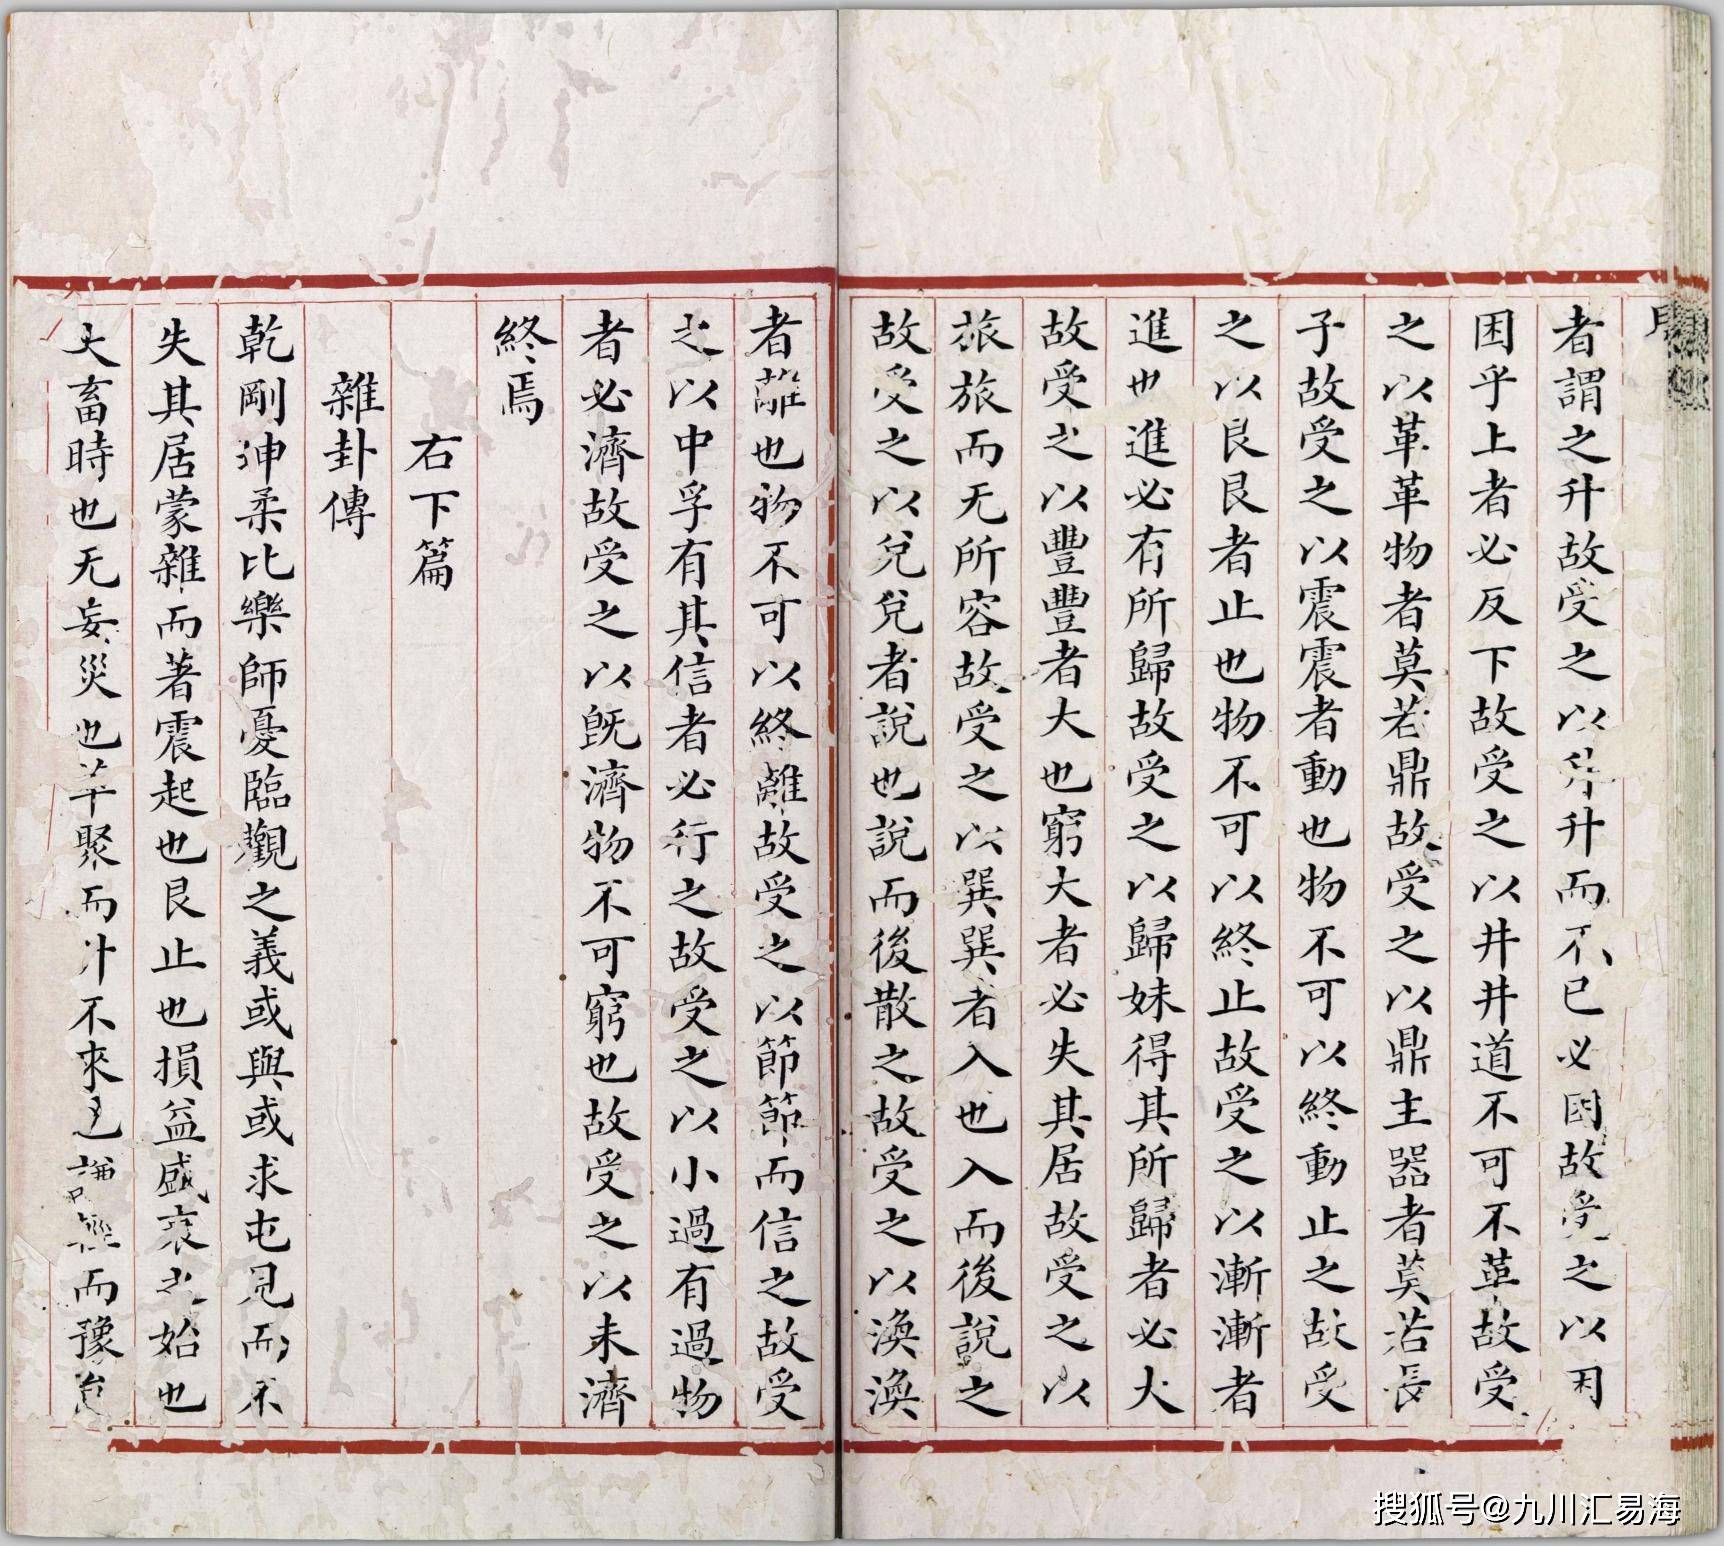 者謂之升故受之以升升而不已必困故受之以困
困乎上者必反下故受之以井井道不可不革故受
之以革革物者莫若鼎故受之以鼎主器者莫若長
子故受之以震震者動也物不可以終動止之故受
之以艮艮者止也物不可以終止故受之以漸漸者
進也進必有所歸故受之以歸妹得其所歸者必大
故受之以豐豐者大也窮大者必失其居故受之以
旅旅而无所容故受之以巽巽者入也入而後說之
故受之以兌兌者說也說而後散之故受之以渙渙
者離也物不可以終離故受之以節節而信之故受
之以中孚有其信者必行之故受之以小過有過物
者必濟故受之以既濟物不可窮也故受之以未濟
終焉
右下篇
雜卦傳
乾剛坤柔比樂師憂臨觀之義或與或求屯見而不
失其居蒙雜而著震起也艮止也損益盛衰之始也
大畜時也无妄災也萃聚而升不來也謙輕而豫怠
搜狐号@九川汇易海